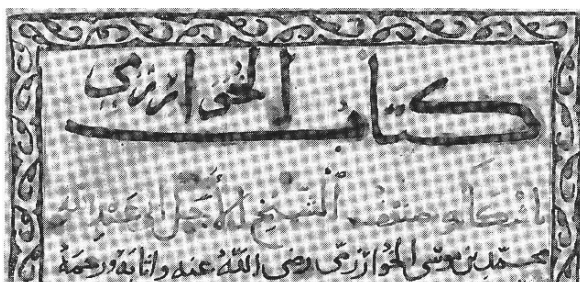 كتاب الخوارزمي
الشيخ الأجل ابو عبد الله
محمد بن موسى الخوارزمى رضى الله عنه واثابه ورحمه